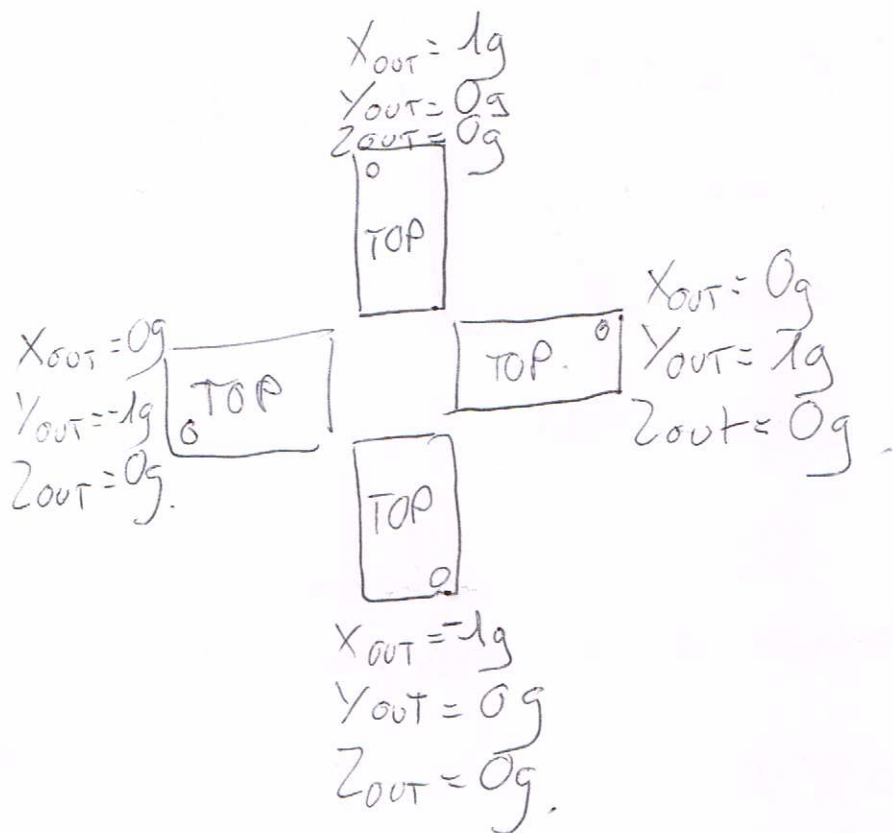 X_OUT = 1g
Y_OUT = 0g
Z_OUT = 0g
TOP
X_OUT = 0g
Y_OUT = -1g
Z_OUT = 0g.
TOP
TOP.
X_OUT = 0g
Y_OUT = 1g
Z_OUT = 0g.
TOP
X_OUT = -1g
Y_OUT = 0g
Z_OUT = 0g.